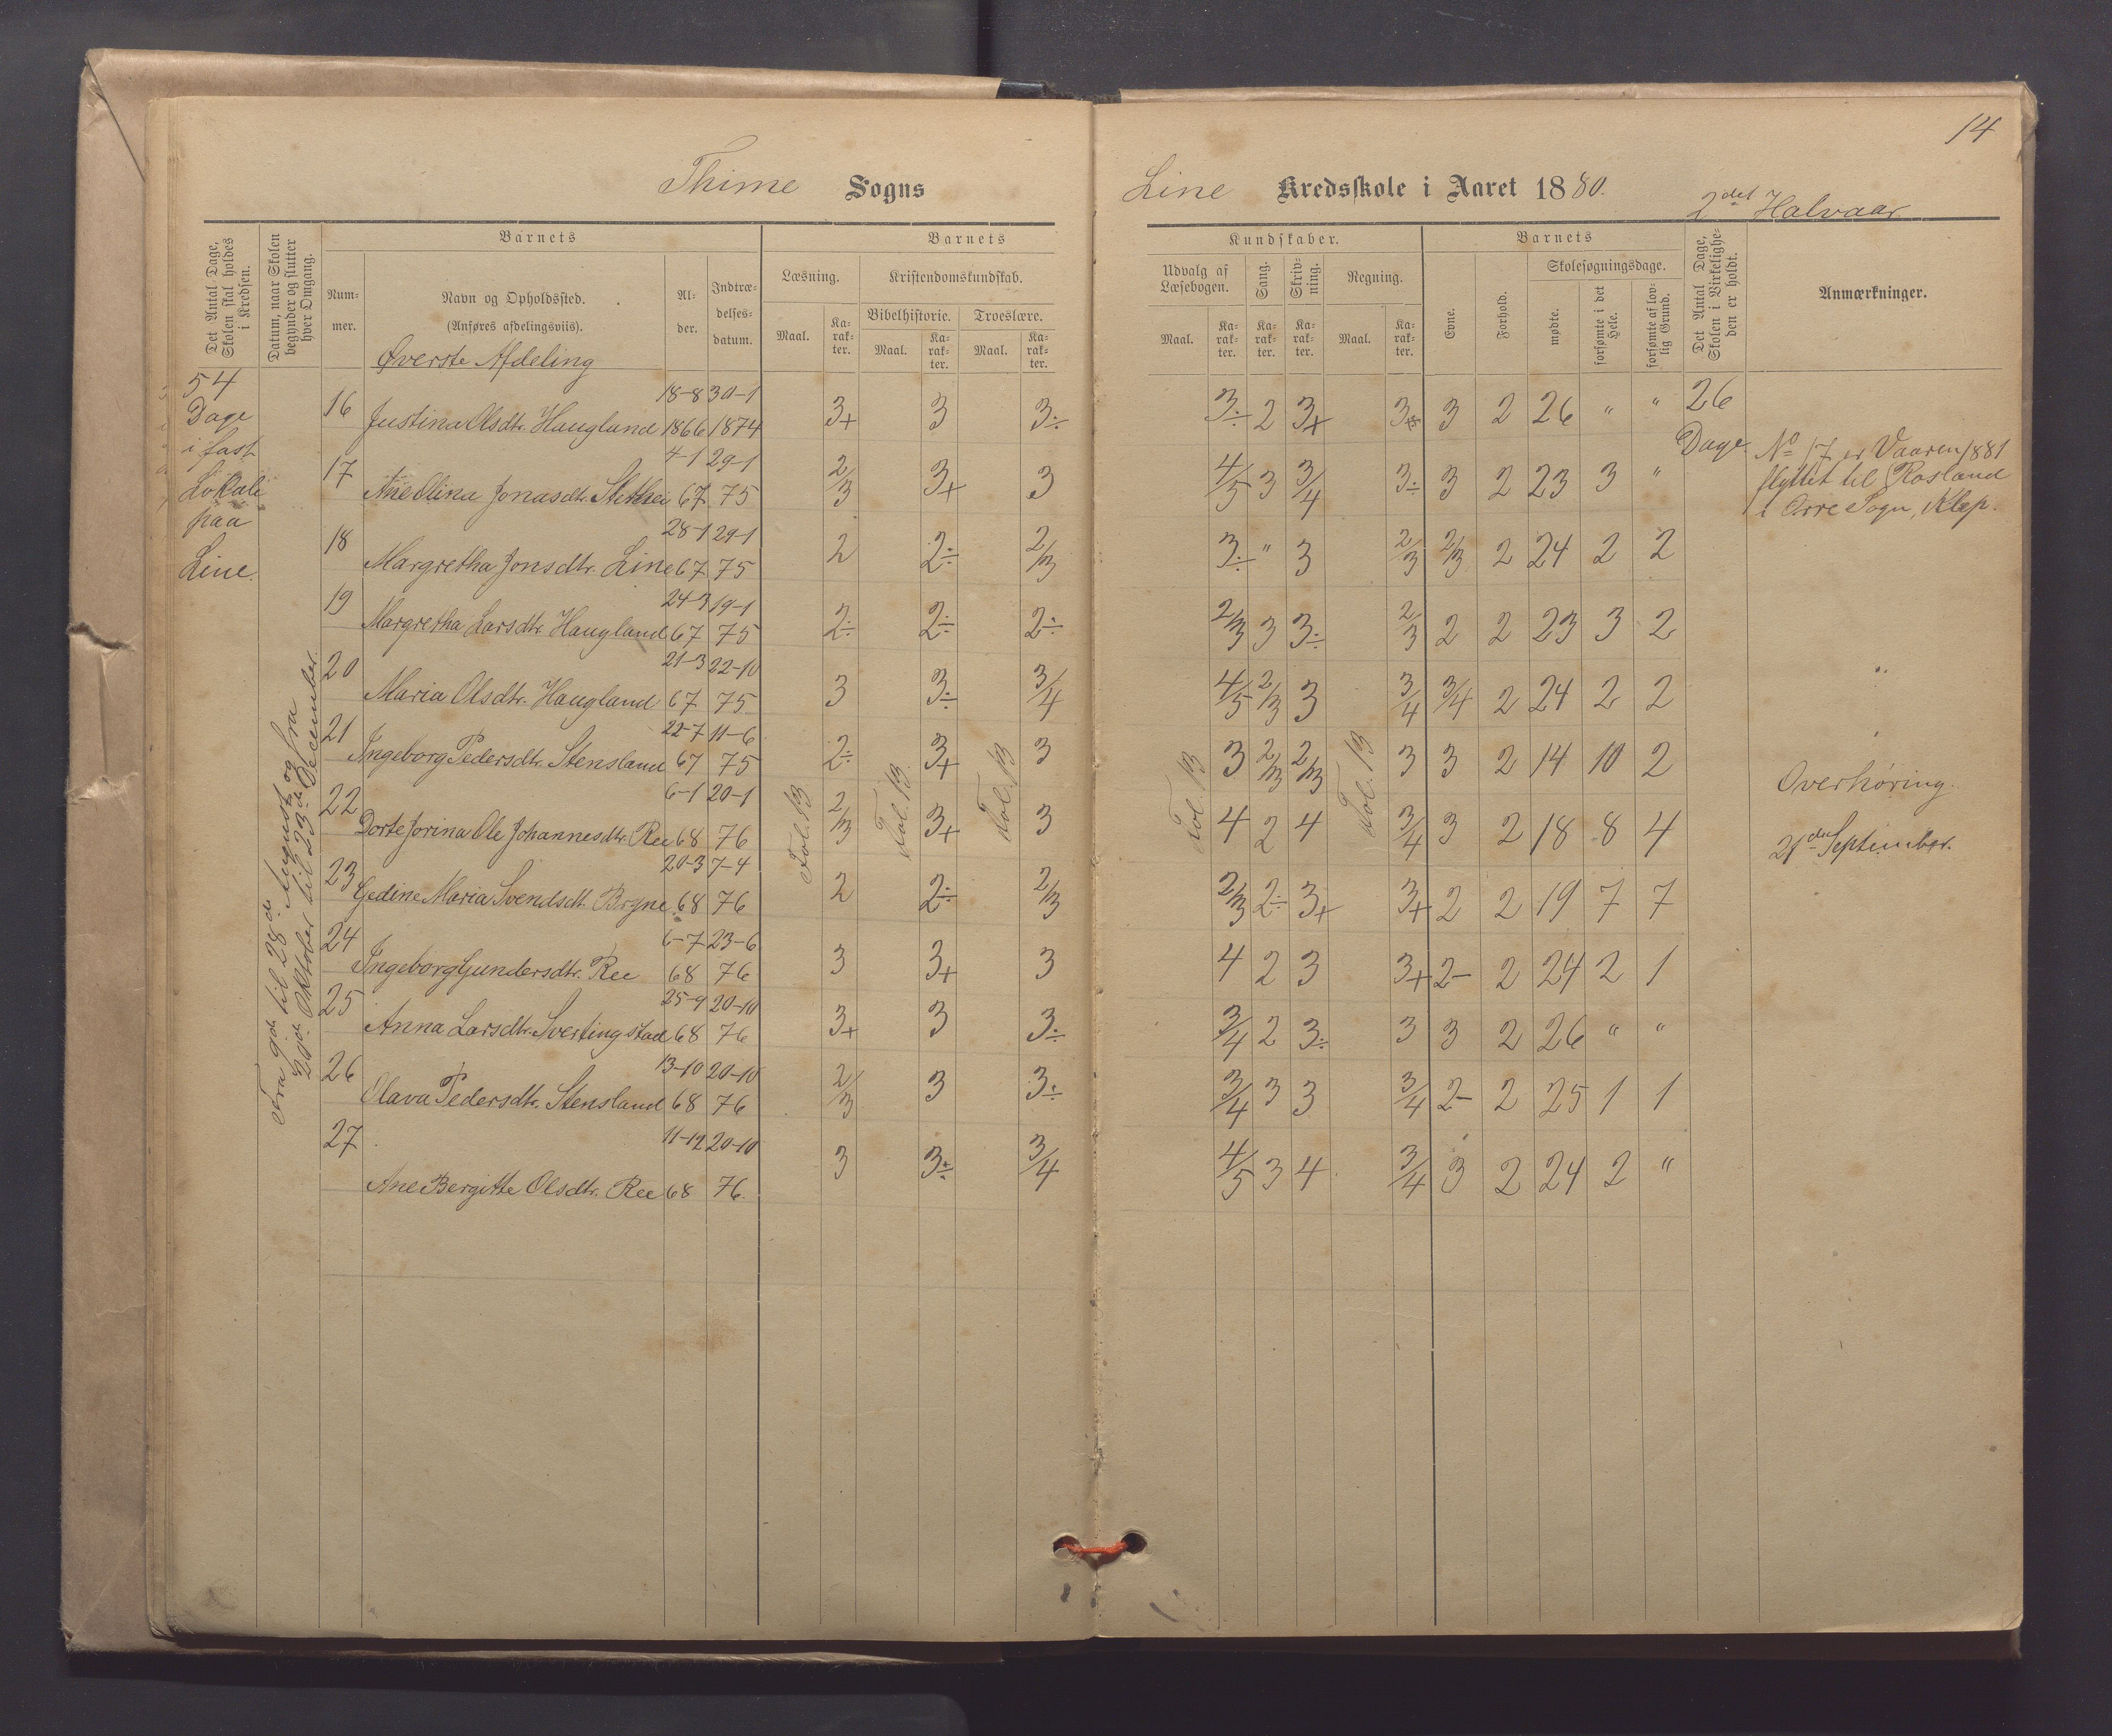 14
Thime Sogns
Line Kredsskole i Aaret 1880.
2det Halvaar
Det Antal Dage, Skolen skal holdes i Kredsen.
Datum, naar Skolen begynder og slutter hver Omgang.
Barnets
Nummer.
Navn og Opholdssted.
(Anføres afdelingsviis).
Alder.
Indtrædelsesdatum.
Barnets
Læsning.
Kristendomskundskab.
Bibelhistorie. Troeslære.
Maal. Karakter. Maal. Karakter. Maal. Karakter.
Kundskaber.
Udvalg af Læsebogen.
Sang.
Skrivning.
Regning.
Maal. Karakter. Karakter. Karakter. Maal. Karakter.
Barnets
Evne.
Forhold.
Skolesøgningsdage.
mødte.
forsømte i det Hele.
forsømte af lovlig Grund.
Det Antal Dage, Skolen i Virkeligheden er holdt.
Anmærkninger.
Øverste Afdeling
54
Dage
i fast
Lokale
paa
Line.
Fra 9de til 28de August og fra
20de Oktober til 23de December.
16 Justina Olsdtr. Haugland 18-8 1866 30-1 1874 3+ 3 3÷ 3÷ 2 3+ 3 2 26 " " 26
Dage
17 Olina Jonasdtr. 4-1 67 29-1 75 2/3 3+ 3 4/5 3 3/4 3÷ 3 2 23 3 "
No 17 er Vaaren 1881
flyttet til Rosland
i Orre Sogn, Klep.
18 Margretha Jonsdtr. Line 28-1 67 29-1 75 2 2÷ 2/3 3÷ " 3 2/3 2/3 2 24 2 2
19 Margretha Larsdtr. Haugland 24-3 67 19-1 75 2÷ 2÷ 2÷ 2/3 3 3÷ 2/3 2 2 23 3 2
20 Maria Olsdtr. Haugland 21-3 67 22-10 75 3 3÷ 3/4 4/5 2/3 3 3/4 3/4 2 24 2 2
21 Ingeborg Pedersdtr. Stensland 22-7 67 11-6 75 2÷ 3+ 3 3 2/3 2/3 3 3 2 14 10 2
22 Dorte Jorina Ole Johannesdtr. Ree 6-1 68 20-1 76 2/3 3+ 3 4 2 4 3/4 3 2 18 8 4
Fol. 13 Fol. 13 Fol. 13 Fol. 13 Fol. 13
Overhøring
21de September.
23 Gedine Maria Svendsdt. Bryne 20-3 68 7-4 76 2 2÷ 2/3 2/3 2÷ 3+ 3+ 2 2 19 7 7
24 Ingeborg Gundersdtr. Ree 6-7 68 23-6 76 3 3+ 3 4 2 3 3+ 2- 2 24 2 1
25 Anna Larsdtr. Svertingstad 25-9 68 20-10 76 3+ 3 3÷ 3/4 2 3÷ 3 3 2 26 " "
26 Olava Pedersdtr. Stensland 13-10 68 20-10 76 2/3 3 3÷ 3/4 3 3 3/4 2- 2 25 1 1
27 Ane Bergitte Olsdtr. Ree 11-12 68 20-10 76. 3 3÷ 3/4 4/5 3 4 3/4 3 2 24 2 "